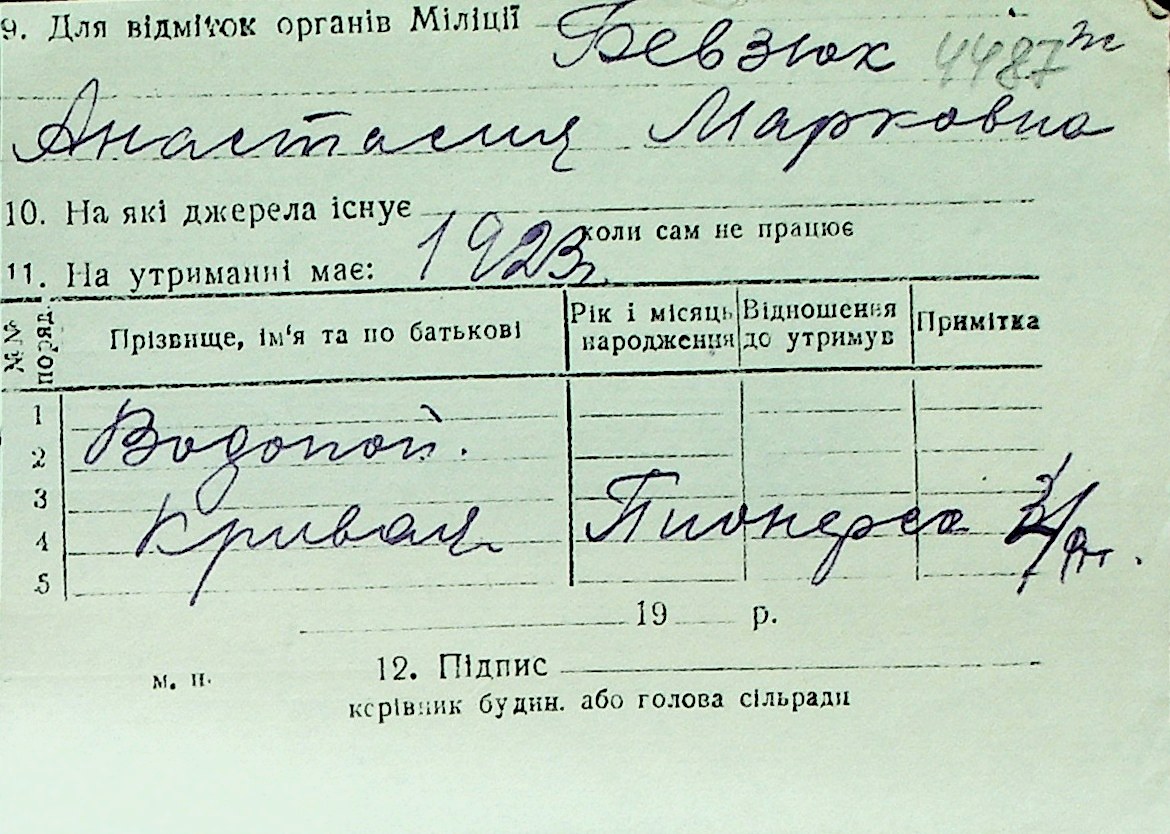 9. Для відміток органів Міліції Бевзюк 4487 ж
Анастасия Марковна
10. На які джерела існує
коли сам не працює
11. На утриманні має: 1923 г.
№№ поряд.
Прізвище, ім'я та по батькові
Рік і місяць народження
Відношення до утримув
Примітка
1
2 Водопой.
3
4 Кривая Пионерса
5
19 р.
м. п.
12. Підпис
керівник будин. або голова сільради